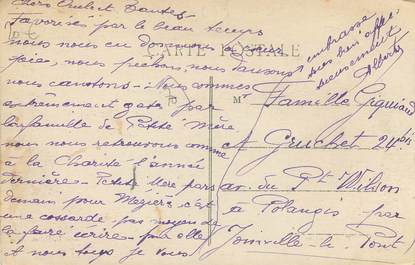 Chers Oncle et Tantes
favorisés par le beau temps
nous nous en donnons à cœur
joie, nous pechons, nous dansons
nous canotons. Nous sommes
extrêmement gatés par
la famille de Petite Mère
nous nous retrouvons comme
a la Charité l'année
dernière. Petite Mère pars
demain pour Mezière c'est
une cossarde pas moyen de
la faire écrire par elle
A nous tous je vous
embrasse
bien affec
tueusement
Albert
CARTE POSTALE
M
Famille
A Gruchet 24bis
av. du Pt Wilson
à Polangis par
Joinville-le-Pont